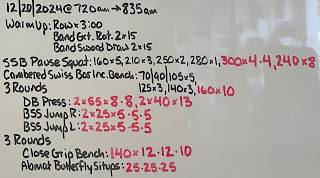 12/20/2024@720am→835am
Warm Up: Row x 3:00
Band Ext. Rot. 2x15
Band Sword Draw 2x15
SSB Pause Squat: 160x5, 210x3, 250x2, 280x1, 300x4·4, 240x8
Cambered Swiss Bar Inc. Bench: 70|90|105x5,
125x3, 140x3, 160x10
3 Rounds
DB Press: 2x55x8·8, 2x40x13
BSS Jump R: 2x25x5·5·5
BSS Jump L: 2x25x5·5·5
3 Rounds
Close Grip Bench: 140x12·12·10
Abmat Butterfly Situps: 25·25·25